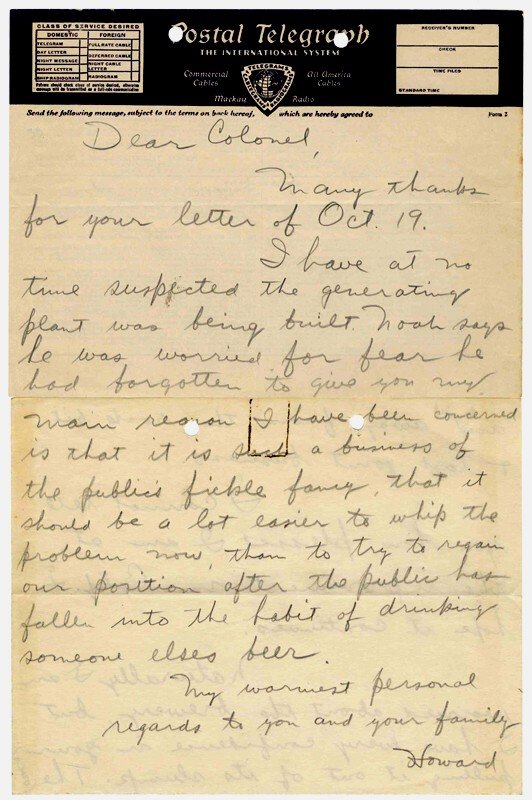 CLASS OF SERVICE DESIRED
DOMESTIC FOREIGN
TELEGRAM FULL RATE CABLE
DAY LETTER DEFERRED CABLE
NIGHT MESSAGE NIGHT CABLE LETTER
NIGHT LETTER
SHIP RADIOGRAM RADIOGRAM
Patrons should check class of service desired, otherwise
message will be transmitted as a full-rate communication
Postal Telegraph
THE INTERNATIONAL SYSTEM
Commercial Cables
All America Cables
TELEGRAMS
Mackay Radio
RECEIVER'S NUMBER
CHECK
TIME FILED
STANDARD TIME
Send the following message, subject to the terms on back hereof, which are hereby agreed to
Form 2
Dear Colonel,
Many thanks
for your letter of Oct. 19.
I have at no
time suspected the generating
plant was being built. Noah says
he was worried for fear he
had forgotten to give you my
main reason I have been concerned
is that it is such a business of
the public's fickle fancy, that it
should be a lot easier to whip the
problem now, than to try to regain
our position after the public has
fallen into the habit of drinking
someone elses beer.
My warmest personal
regards to you and your family
Howard